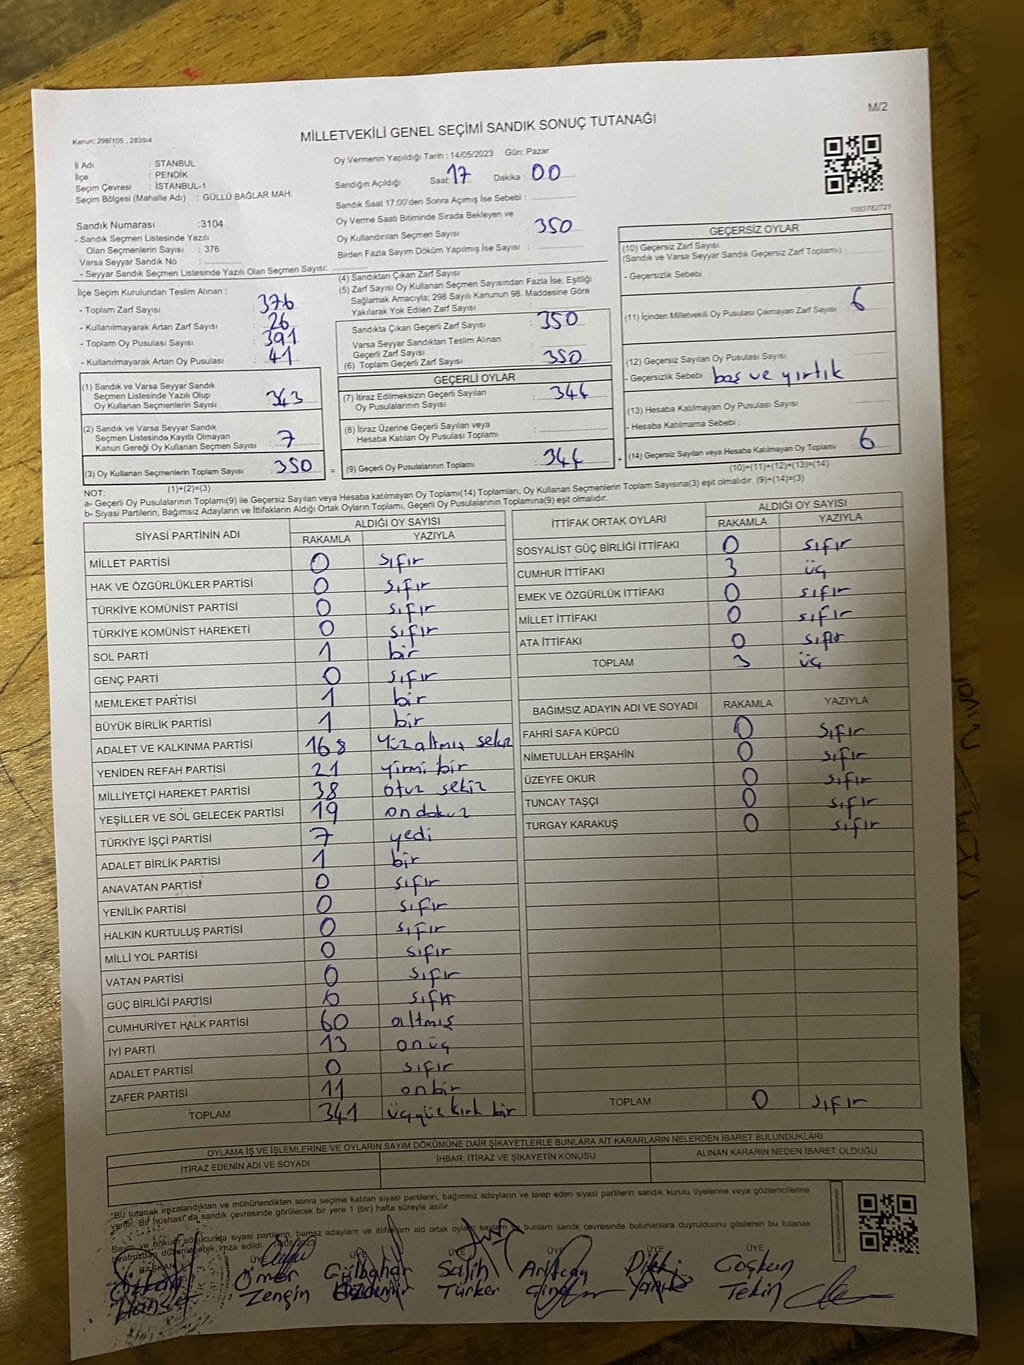 M/2
Kanun: 298/105 , 2839/4
MİLLETVEKİLİ GENEL SEÇİMİ SANDIK SONUÇ TUTANAĞI
İl Adı : STANBUL
İlçe : PENDİK
Seçim Çevresi : İSTANBUL-1
Seçim Bölgesi (Mahalle Adı) : GÜLLÜ BAĞLAR MAH.
Oy Vermenin Yapıldığı Tarih : 14/05/2023 Gün: Pazar
Sandığın Açıldığı Saat: 17 Dakika : 00
Sandık Saat 17:00'den Sonra Açılmış İse Sebebi :
Oy Verme Saati Bitiminde Sırada Bekleyen ve
Oy Kullandırılan Seçmen Sayısı : 350
Birden Fazla Sayım Döküm Yapılmış İse Sayısı :
1093782721
Sandık Numarası :3104
- Sandık Seçmen Listesinde Yazılı
Olan Seçmenlerin Sayısı : 376
Varsa Seyyar Sandık No :
- Seyyar Sandık Seçmen Listesinde Yazılı Olan Seçmen Sayısı:
İlçe Seçim Kurulundan Teslim Alınan :
- Toplam Zarf Sayısı : 376
- Kullanılmayarak Artan Zarf Sayısı : 26
- Toplam Oy Pusulası Sayısı : 391
- Kullanılmayarak Artan Oy Pusulası : 41
(1) Sandık ve Varsa Seyyar Sandık
Seçmen Listesinde Yazılı Olup
Oy Kullanan Seçmenlerin Sayısı : 343
(2) Sandık ve Varsa Seyyar Sandık
Seçmen Listesinde Kayıtlı Olmayan
Kanun Gereği Oy Kullanan Seçmen Sayısı : 7
(3) Oy Kullanan Seçmenlerin Toplam Sayısı : 350
(1)+(2)=(3)
(4) Sandıktan Çıkan Zarf Sayısı :
(5) Zarf Sayısı Oy Kullanan Seçmen Sayısından Fazla İse, Eşitliği
Sağlamak Amacıyla; 298 Sayılı Kanunun 98. Maddesine Göre
Yakılarak Yok Edilen Zarf Sayısı :
Sandıkta Çıkan Geçerli Zarf Sayısı : 350
Varsa Seyyar Sandıktan Teslim Alınan
Geçerli Zarf Sayısı :
(6) Toplam Geçerli Zarf Sayısı : 350
GEÇERLİ OYLAR
(7) İtiraz Edilmeksizin Geçerli Sayılan
Oy Pusulalarının Sayısı : 344
(8) İtiraz Üzerine Geçerli Sayılan veya
Hesaba Katılan Oy Pusulası Toplamı :
= (9) Geçerli Oy Pusulalarının Toplamı : 344
GEÇERSİZ OYLAR
(10) Geçersiz Zarf Sayısı
(Sandık ve Varsa Seyyar Sandık Geçersiz Zarf Toplamı) :
- Geçersizlik Sebebi
(11) İçinden Milletvekili Oy Pusulası Çıkmayan Zarf Sayısı : 6
(12) Geçersiz Sayılan Oy Pusulası Sayısı :
- Geçersizlik Sebebi boş ve yırtık
(13) Hesaba Katılmayan Oy Pusulası Sayısı :
- Hesaba Katılmama Sebebi :
+ (14) Geçersiz Sayılan veya Hesaba Katılmayan Oy Toplamı : 6
(10)+(11)+(12)+(13)=(14)
NOT:
a- Geçerli Oy Pusulalarının Toplamı(9) ile Geçersiz Sayılan veya Hesaba katılmayan Oy Toplamı(14) Toplamları, Oy Kullanan Seçmenlerin Toplam Sayısına(3) eşit olmalıdır. (9)+(14)=(3)
b- Siyasi Partilerin, Bağımsız Adayların ve İttifakların Aldığı Ortak Oyların Toplamı, Geçerli Oy Pusulalarının Toplamına(9) eşit olmalıdır.
SİYASİ PARTİNİN ADI ALDIĞI OY SAYISI
RAKAMLA YAZIYLA
MİLLET PARTİSİ 0 sıfır
HAK VE ÖZGÜRLÜKLER PARTİSİ 0 sıfır
TÜRKİYE KOMÜNİST PARTİSİ 0 sıfır
TÜRKİYE KOMÜNİST HAREKETİ 0 sıfır
SOL PARTİ 1 bir
GENÇ PARTİ 0 sıfır
MEMLEKET PARTİSİ 1 bir
BÜYÜK BİRLİK PARTİSİ 1 bir
ADALET VE KALKINMA PARTİSİ 168 yüz altmış sekiz
YENİDEN REFAH PARTİSİ 21 yirmi bir
MİLLİYETÇİ HAREKET PARTİSİ 38 otuz sekiz
YEŞİLLER VE SOL GELECEK PARTİSİ 19 on dokuz
TÜRKİYE İŞÇİ PARTİSİ 7 yedi
ADALET BİRLİK PARTİSİ 1 bir
ANAVATAN PARTİSİ 0 sıfır
YENİLİK PARTİSİ 0 sıfır
HALKIN KURTULUŞ PARTİSİ 0 sıfır
MİLLİ YOL PARTİSİ 0 sıfır
VATAN PARTİSİ 0 sıfır
GÜÇ BİRLİĞİ PARTİSİ 0 sıfır
CUMHURİYET HALK PARTİSİ 60 altmış
İYİ PARTİ 13 onüç
ADALET PARTİSİ 0 sıfır
ZAFER PARTİSİ 11 onbir
TOPLAM 341 üçyüz kırk bir
İTTİFAK ORTAK OYLARI ALDIĞI OY SAYISI
RAKAMLA YAZIYLA
SOSYALİST GÜÇ BİRLİĞİ İTTİFAKI 0 sıfır
CUMHUR İTTİFAKI 3 üç
EMEK VE ÖZGÜRLÜK İTTİFAKI 0 sıfır
MİLLET İTTİFAKI 0 sıfır
ATA İTTİFAKI 0 sıfır
TOPLAM 3 üç
BAĞIMSIZ ADAYIN ADI VE SOYADI RAKAMLA YAZIYLA
FAHRİ SAFA KÜPCÜ 0 sıfır
NİMETULLAH ERŞAHİN 0 sıfır
ÜZEYFE OKUR 0 sıfır
TUNCAY TAŞÇI 0 sıfır
TURGAY KARAKUŞ 0 sıfır
TOPLAM 0 sıfır
OYLAMA İŞ VE İŞLEMLERİNE VE OYLARIN SAYIM DÖKÜMÜNE DAİR ŞİKAYETLERLE BUNLARA AİT KARARLARIN NELERDEN İBARET BULUNDUKLARI
İTİRAZ EDENİN ADI VE SOYADI İHBAR, İTİRAZ VE ŞİKAYETİN KONUSU ALINAN KARARIN NEDEN İBARET OLDUĞU
"Bu tutanak imzalandıktan ve mühürlendikten sonra seçime katılan siyasi partilerin, bağımsız adayların ve talep eden siyasi partilerin sandık kurulu üyelerine veya gözlemcilerine
verilir. Bir nüshası da sandık çevresinde görülecek bir yere 1 (bir) hafta süreyle asılır
BAŞKAN ÜYE ÜYE ÜYE ÜYE ÜYE ÜYE
Ömer Gülbahar Salih Coşkun
Zengin Özdemir Türker Tekin